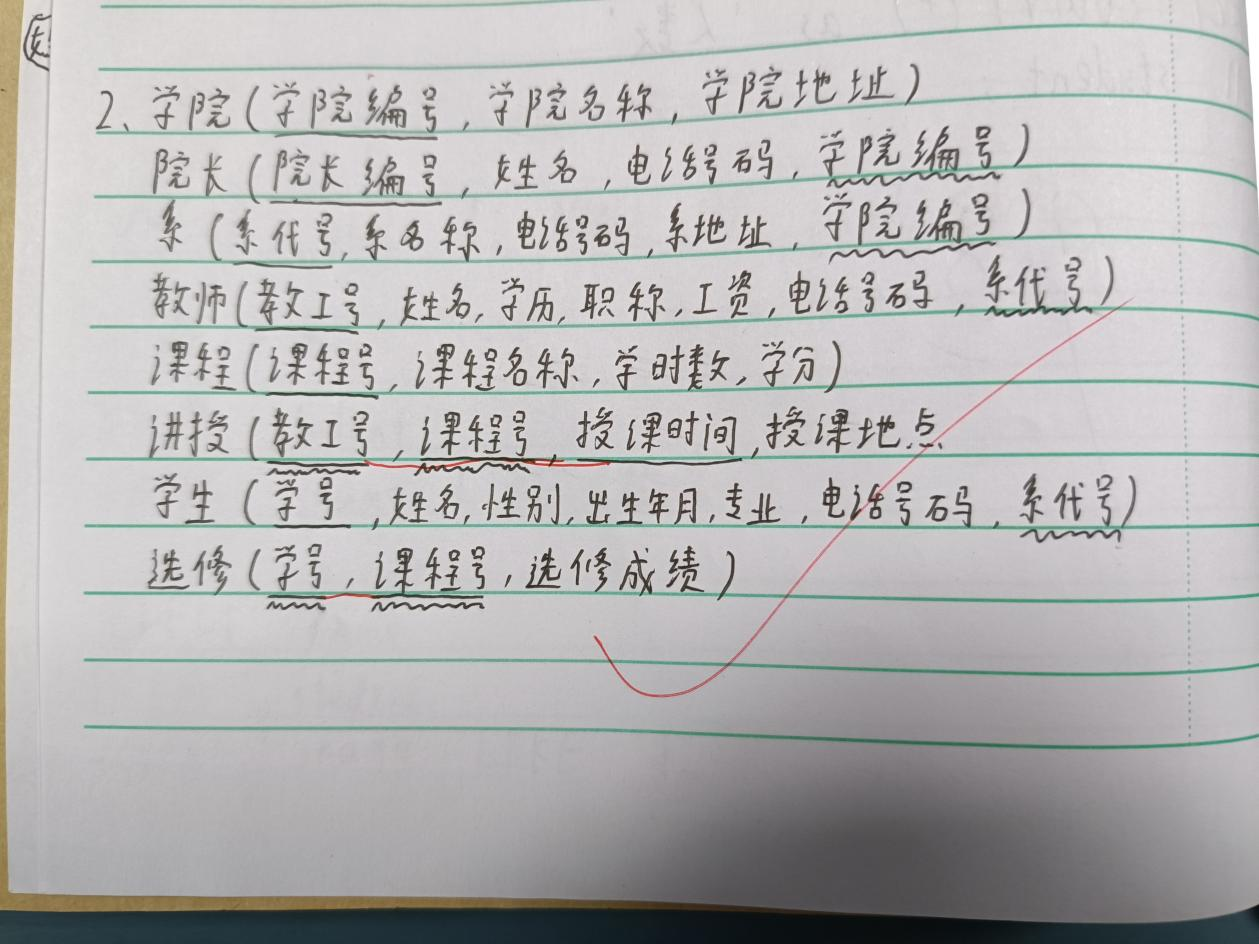 2、学院(学院编号, 学院名称, 学院地址)
院长(院长编号, 姓名, 电话号码, 学院编号)
系(系代号, 系名称, 电话号码, 系地址, 学院编号)
教师(教工号, 姓名, 学历, 职称, 工资, 电话号码, 系代号)
课程(课程号, 课程名称, 学时数, 学分)
讲授(教工号, 课程号, 授课时间, 授课地点
学生(学号, 姓名, 性别, 出生年月, 专业, 电话号码, 系代号)
选修(学号, 课程号, 选修成绩)